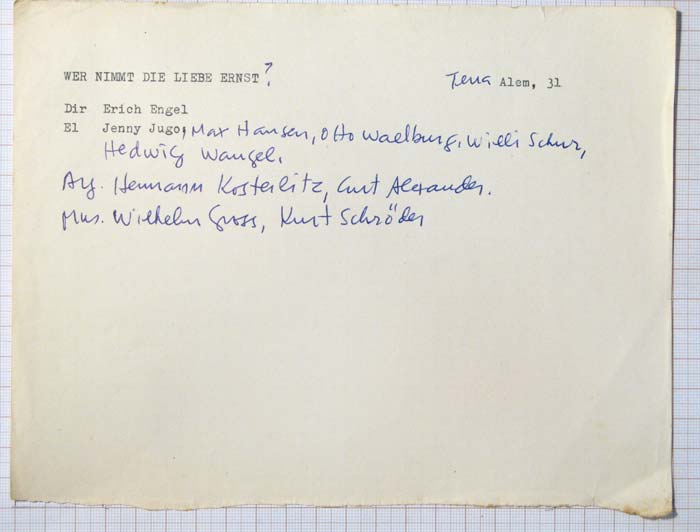 WER NIMMT DIE LIEBE ERNST? Terra Alem, 31
Dir Erich Engel
El Jenny Jugo, Max Hansen, Otto Waelburg, Willi Schur,
Hedwig Wangel.
Arg. Hermann Kosterlitz, Curt Alexander.
Mus. Wilhelm Gross, Kurt Schröder